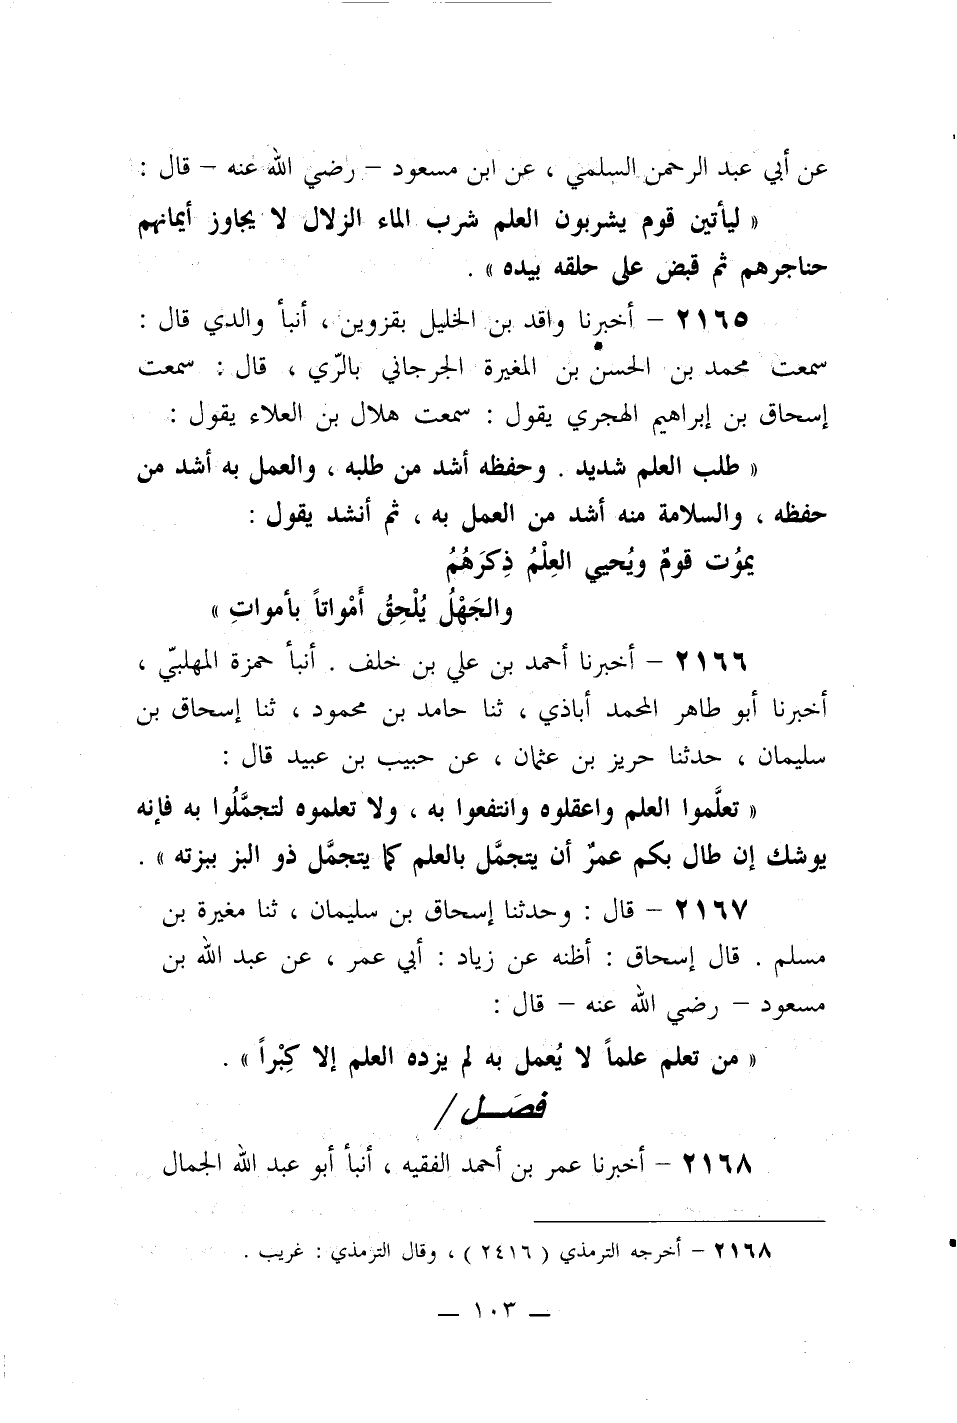 عن أبي عبد الرحمن السلمي ، عن ابن مسعود – رضي الله عنه – قال :
« ليأتين قوم يشربون العلم شرب الماء الزلال لا يجاوز أيمانهم
حناجرهم ثم قبض على حلقه بيده » .
٢١٦٥ – أخبرنا واقد بن الخليل بقزوين ، أنبأ والدي قال :
سمعت محمد بن الحسن بن المغيرة الجرجاني بالرّي ، قال : سمعت
إسحاق بن إبراهيم الهجري يقول : سمعت هلال بن العلاء يقول :
« طلب العلم شديد . وحفظه أشد من طلبه ، والعمل به أشد من
حفظه ، والسلامة منه أشد من العمل به ، ثم أنشد يقول :
يموُت قومٌ ويُحيي العِلْمُ ذِكرَهُمُ
والجَهْلُ يُلْحِقُ أَمْواتاً بأمواتِ »
٢١٦٦ – أخبرنا أحمد بن علي بن خلف . أنبأ حمزة المهلبيّ ،
أخبرنا أبو طاهر المحمد أباذي ، ثنا حامد بن محمود ، ثنا إسحاق بن
سليمان ، حدثنا حريز بن عثمان ، عن حبيب بن عبيد قال :
« تعلَّموا العلم واعقلوه وانتفعوا به ، ولا تعلموه لتجمَّلُوا به فإنه
يوشك إن طال بكم عمرٌ أن يتجمَّل بالعلم كما يتجمَّل ذو البز ببزته » .
٢١٦٧ – قال : وحدثنا إسحاق بن سليمان ، ثنا مغيرة بن
مسلم . قال إسحاق : أظنه عن زياد : أبي عمر ، عن عبد الله بن
مسعود – رضي الله عنه – قال :
« من تعلم علماً لا يُعمل به لم يزده العلم إلا كِبْراً » .
فصَــل /
٢١٦٨ – أخبرنا عمر بن أحمد الفقيه ، أنبأ أبو عبد الله الجمال
٢١٦٨ – أخرجه الترمذي ( ٢٤١٦ ) ، وقال الترمذي : غريب .
— ١٠٣ —